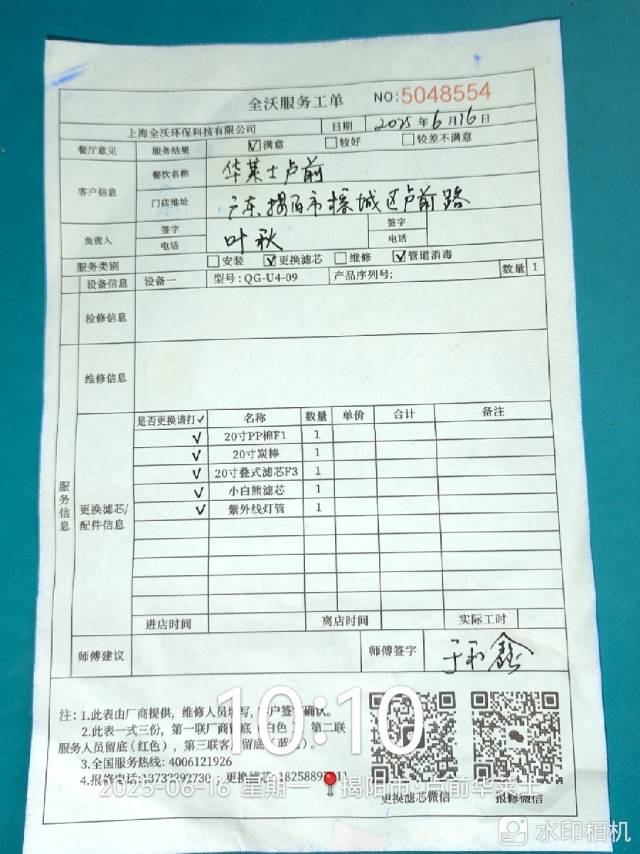 全沃服务工单 NO:5048554
上海全沃环保科技有限公司 日期 2025年6月16日
餐厅意见 服务结果 ☑满意 □较好 □较差不满意
客户信息 餐饮名称 华莱士卢前
门店地址 广东揭阳市榕城区卢前路
负责人 签字 叶秋 签字
电话 电话
服务类别 □安装 ☑更换滤芯 □维修 ☑管道消毒
设备信息 设备一 型号: QG-U4-09 产品序列号: 数量 1
检修信息
维修信息
服务信息
更换滤芯/配件信息
是否更换请打✓ 名称 数量 单价 合计 备注
✓ 20寸PP棉F1 1
✓ 20寸炭棒 1
✓ 20寸叠式滤芯F3 1
✓ 小白熊滤芯 1
✓ 紫外线灯管 1
进店时间 离店时间 实际工时
师傅建议 师傅签字
注: 1.此表由厂商提供, 维修人员填写, 客户签字确认。
2.此表一式三份, 第一联厂商留底(白色), 第二联
服务人员留底(红色), 第三联客户留底(蓝色)。
3.全国服务热线: 4006121926
4.报修电话: 更换滤芯:
更换滤芯微信 报修微信
10:10
2025-06-16 星期一 揭阳市·卢前华莱士
水印相机